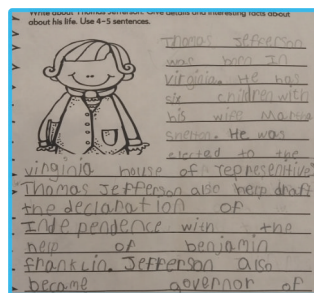 Write about Thomas Jefferson. Give details and interesting facts about
about his life. Use 4-5 sentences.
Thomas Jefferson
was born In
Virginia. He has
six children with
his wife Martha
He was
elected to the
virginia house of representitive
Thomas Jefferson also help draft
the declaration of
Independence with the
help of benjamin
franklin. Jefferson also
became governor of